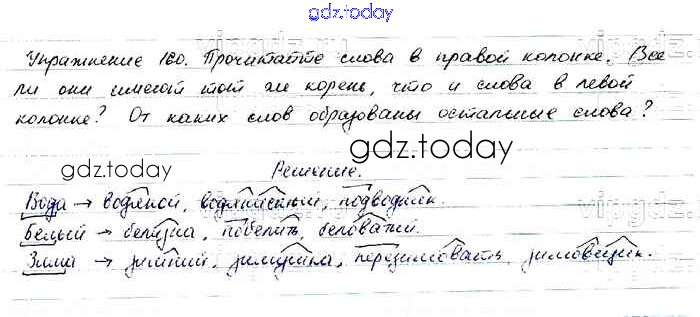 gdz.today
Упражнение 160. Прочитайте слова в правой колонке. Все
ли они имеют тот же корень, что и слова в левой
колонке? От каких слов образованы остальные слова?
gdz.today
gdz.today
Решение.
Вода → водяной, водянистый, подводник.
Белый → белизна, побелить, беловатый.
Зима → зимний, зимушка, перезимовать, зимовщик.